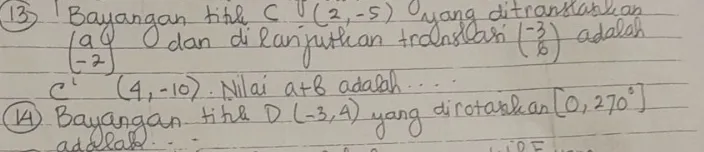 (13) Bayangan titik C (2,-5) yang ditranslasikan
(a -2) dan dilanjutkan translasi (-3 b) adalah
C' (4,-10). Nilai a+b adalah ....
(14) Bayangan titik D (-3,4) yang dirotasikan [0,270°]
adalah...